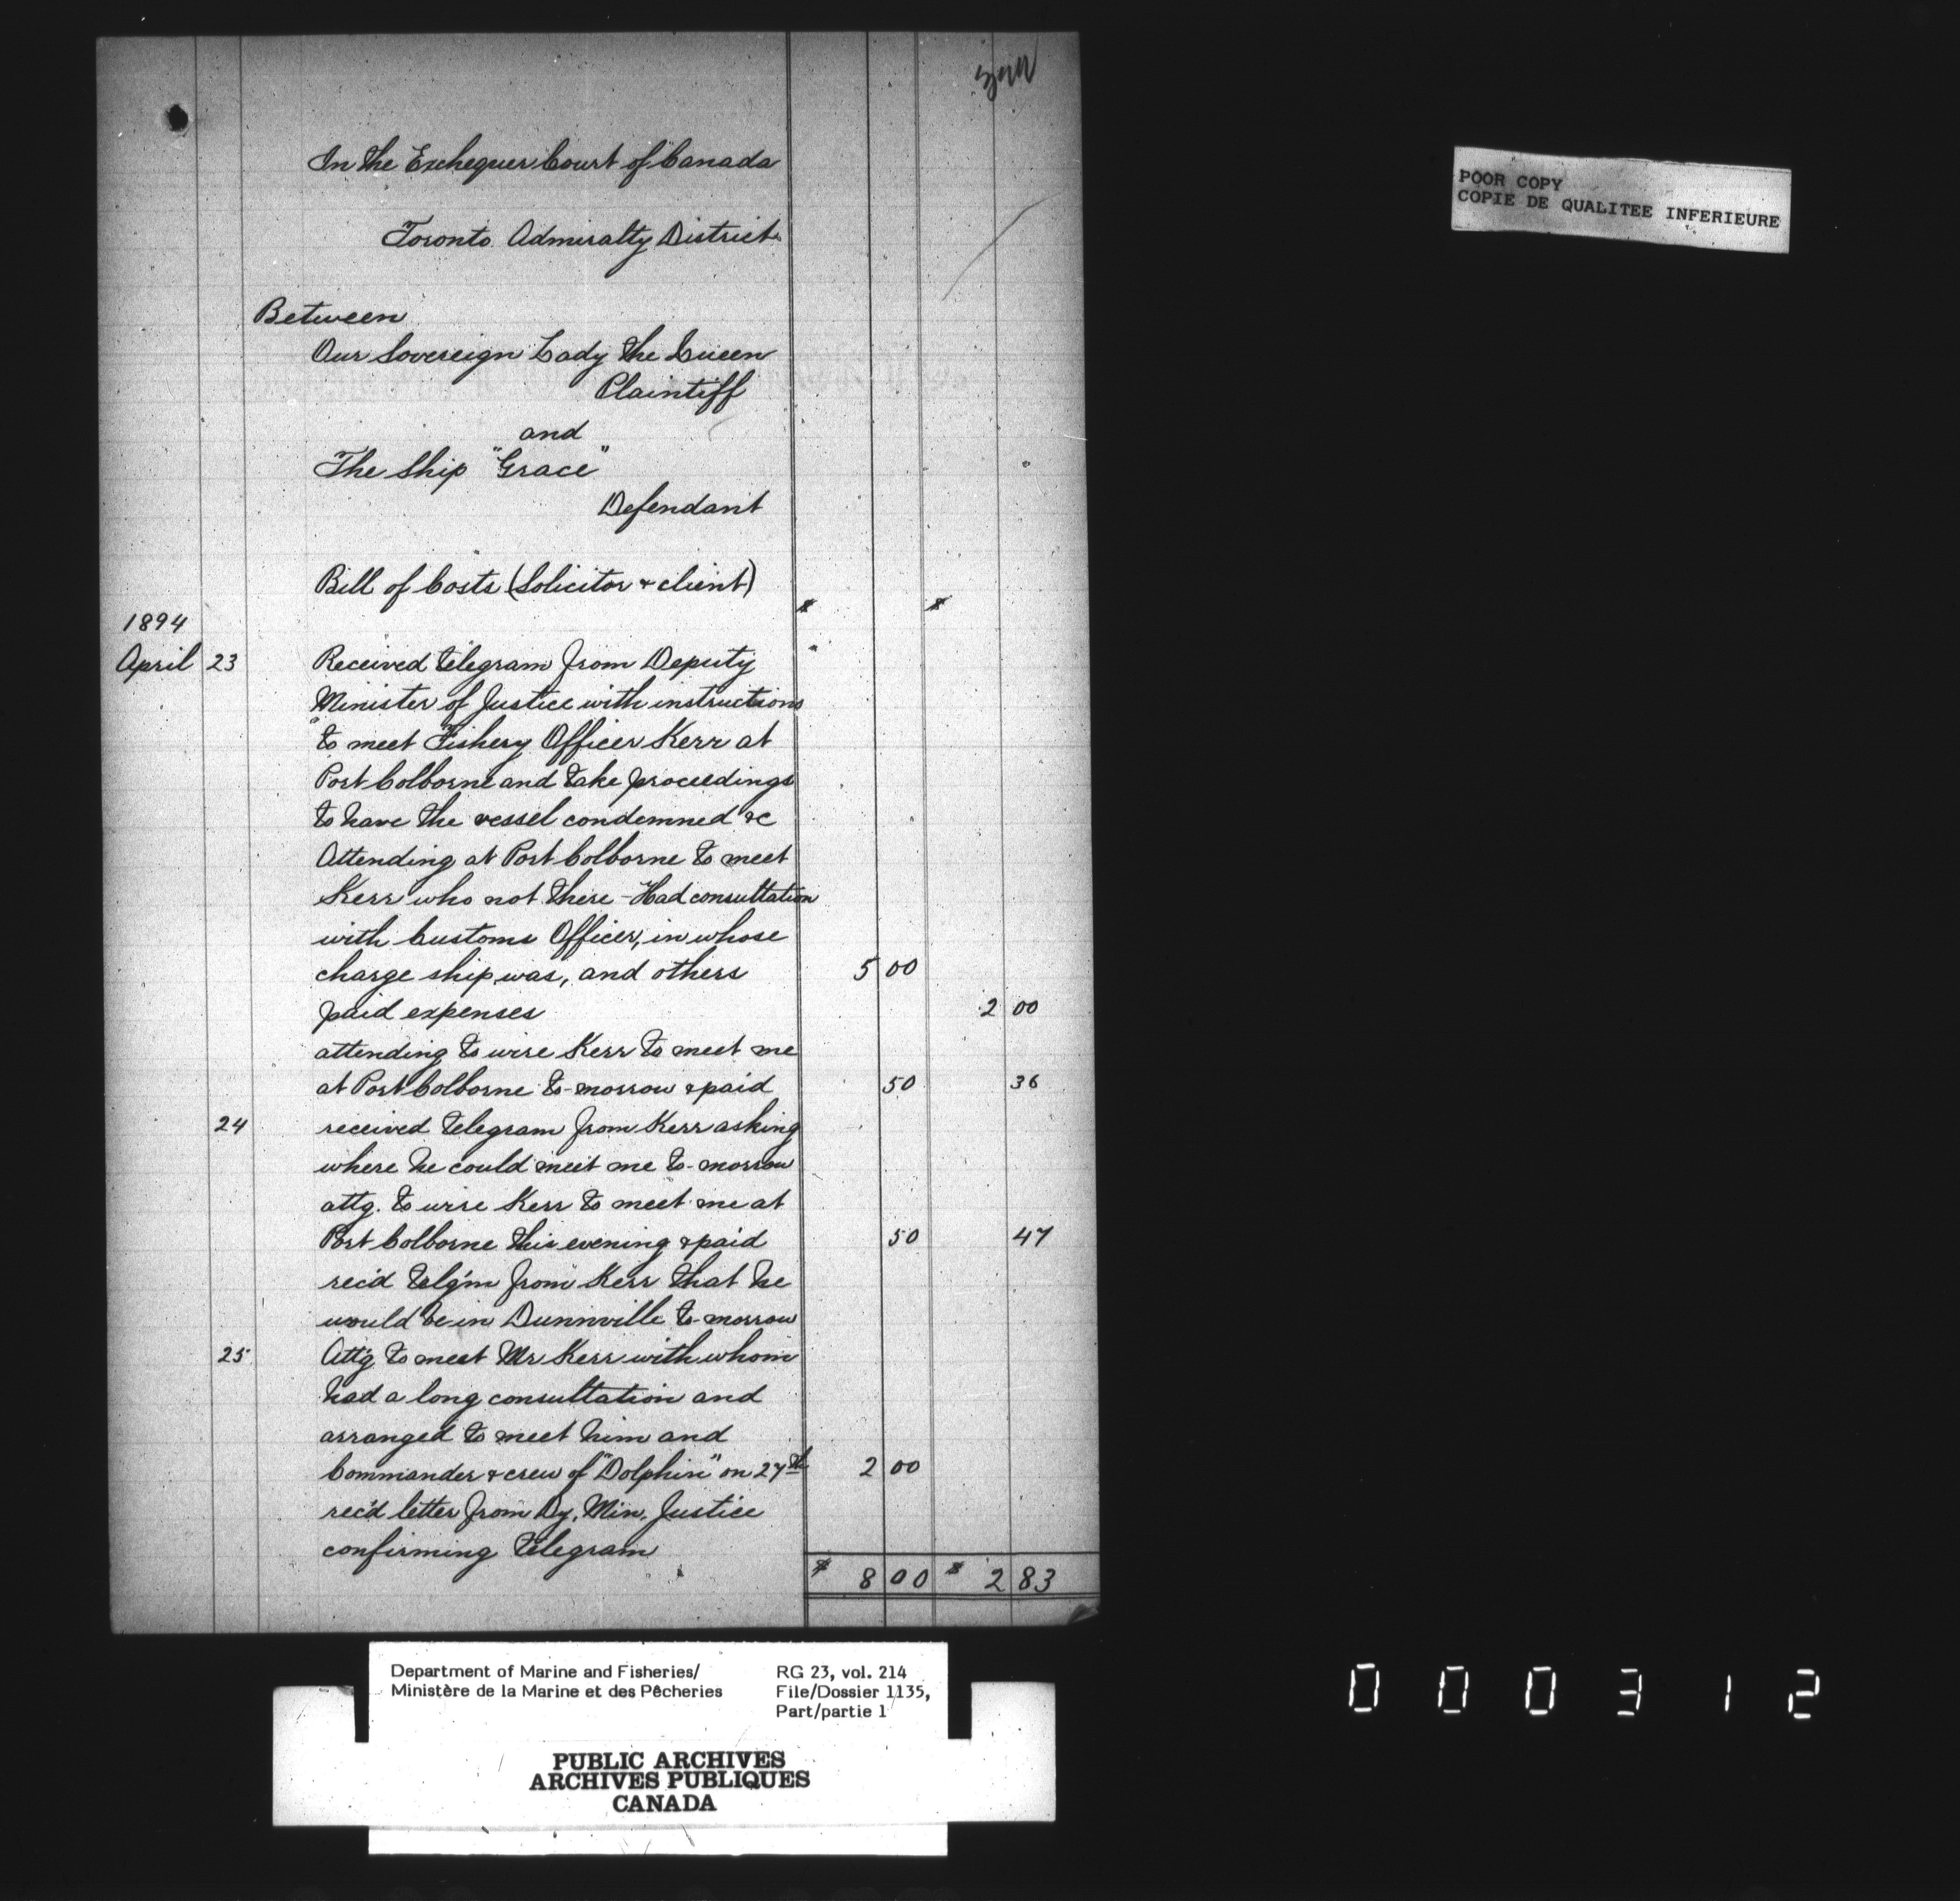 In the Exchequer Court of Canada
Toronto Admiralty District
Between
Our Sovereign Lady the Queen
Plaintiff
and
The Ship "Grace"
Defendant
Bill of Costs (Solicitor & client)
$ $
1894
April 23 Received telegram from Deputy
Minister of Justice with instructions
to meet Fishery Officer Kerr at
Port Colborne and take proceedings
to have the vessel condemned &c
Attending at Port Colborne to meet
Kerr who not there - Had consultation
with Customs Officer, in whose
charge ship was, and others 5 00
paid expenses 2 00
attending to wire Kerr to meet me
at Port Colborne to-morrow & paid 50 36
24 received telegram from Kerr asking
where he could meet me to-morrow
attg. to wire Kerr to meet me at
Port Colborne this evening & paid 50 47
rec'd telg'm from Kerr that he
would be in Dunnville to-morrow
25 Att'g to meet Mr Kerr with whom
had a long consultation and
arranged to meet him and
Commander & crew of "Dolphin" on 27th 2 00
rec'd letter from Dy. Min. Justice
confirming telegram
$ 8 00 $ 2 83
POOR COPY
COPIE DE QUALITEE INFERIEURE
Department of Marine and Fisheries/
Ministère de la Marine et des Pêcheries
RG 23, vol. 214
File/Dossier 1135,
Part/partie 1
PUBLIC ARCHIVES
ARCHIVES PUBLIQUES
CANADA
000312